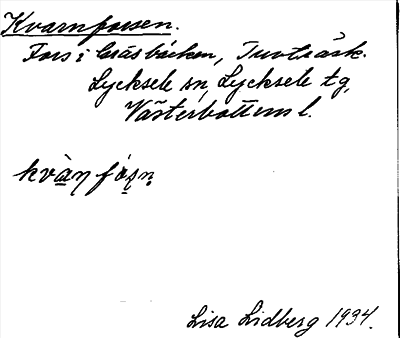 Kvarnforsen.
Fors i Gråsbäcken, Tuvträsk.
Lycksele sn, Lycksele tg,
Västerbottens l.
kvàn fósn
Lisa Lidberg 1934.